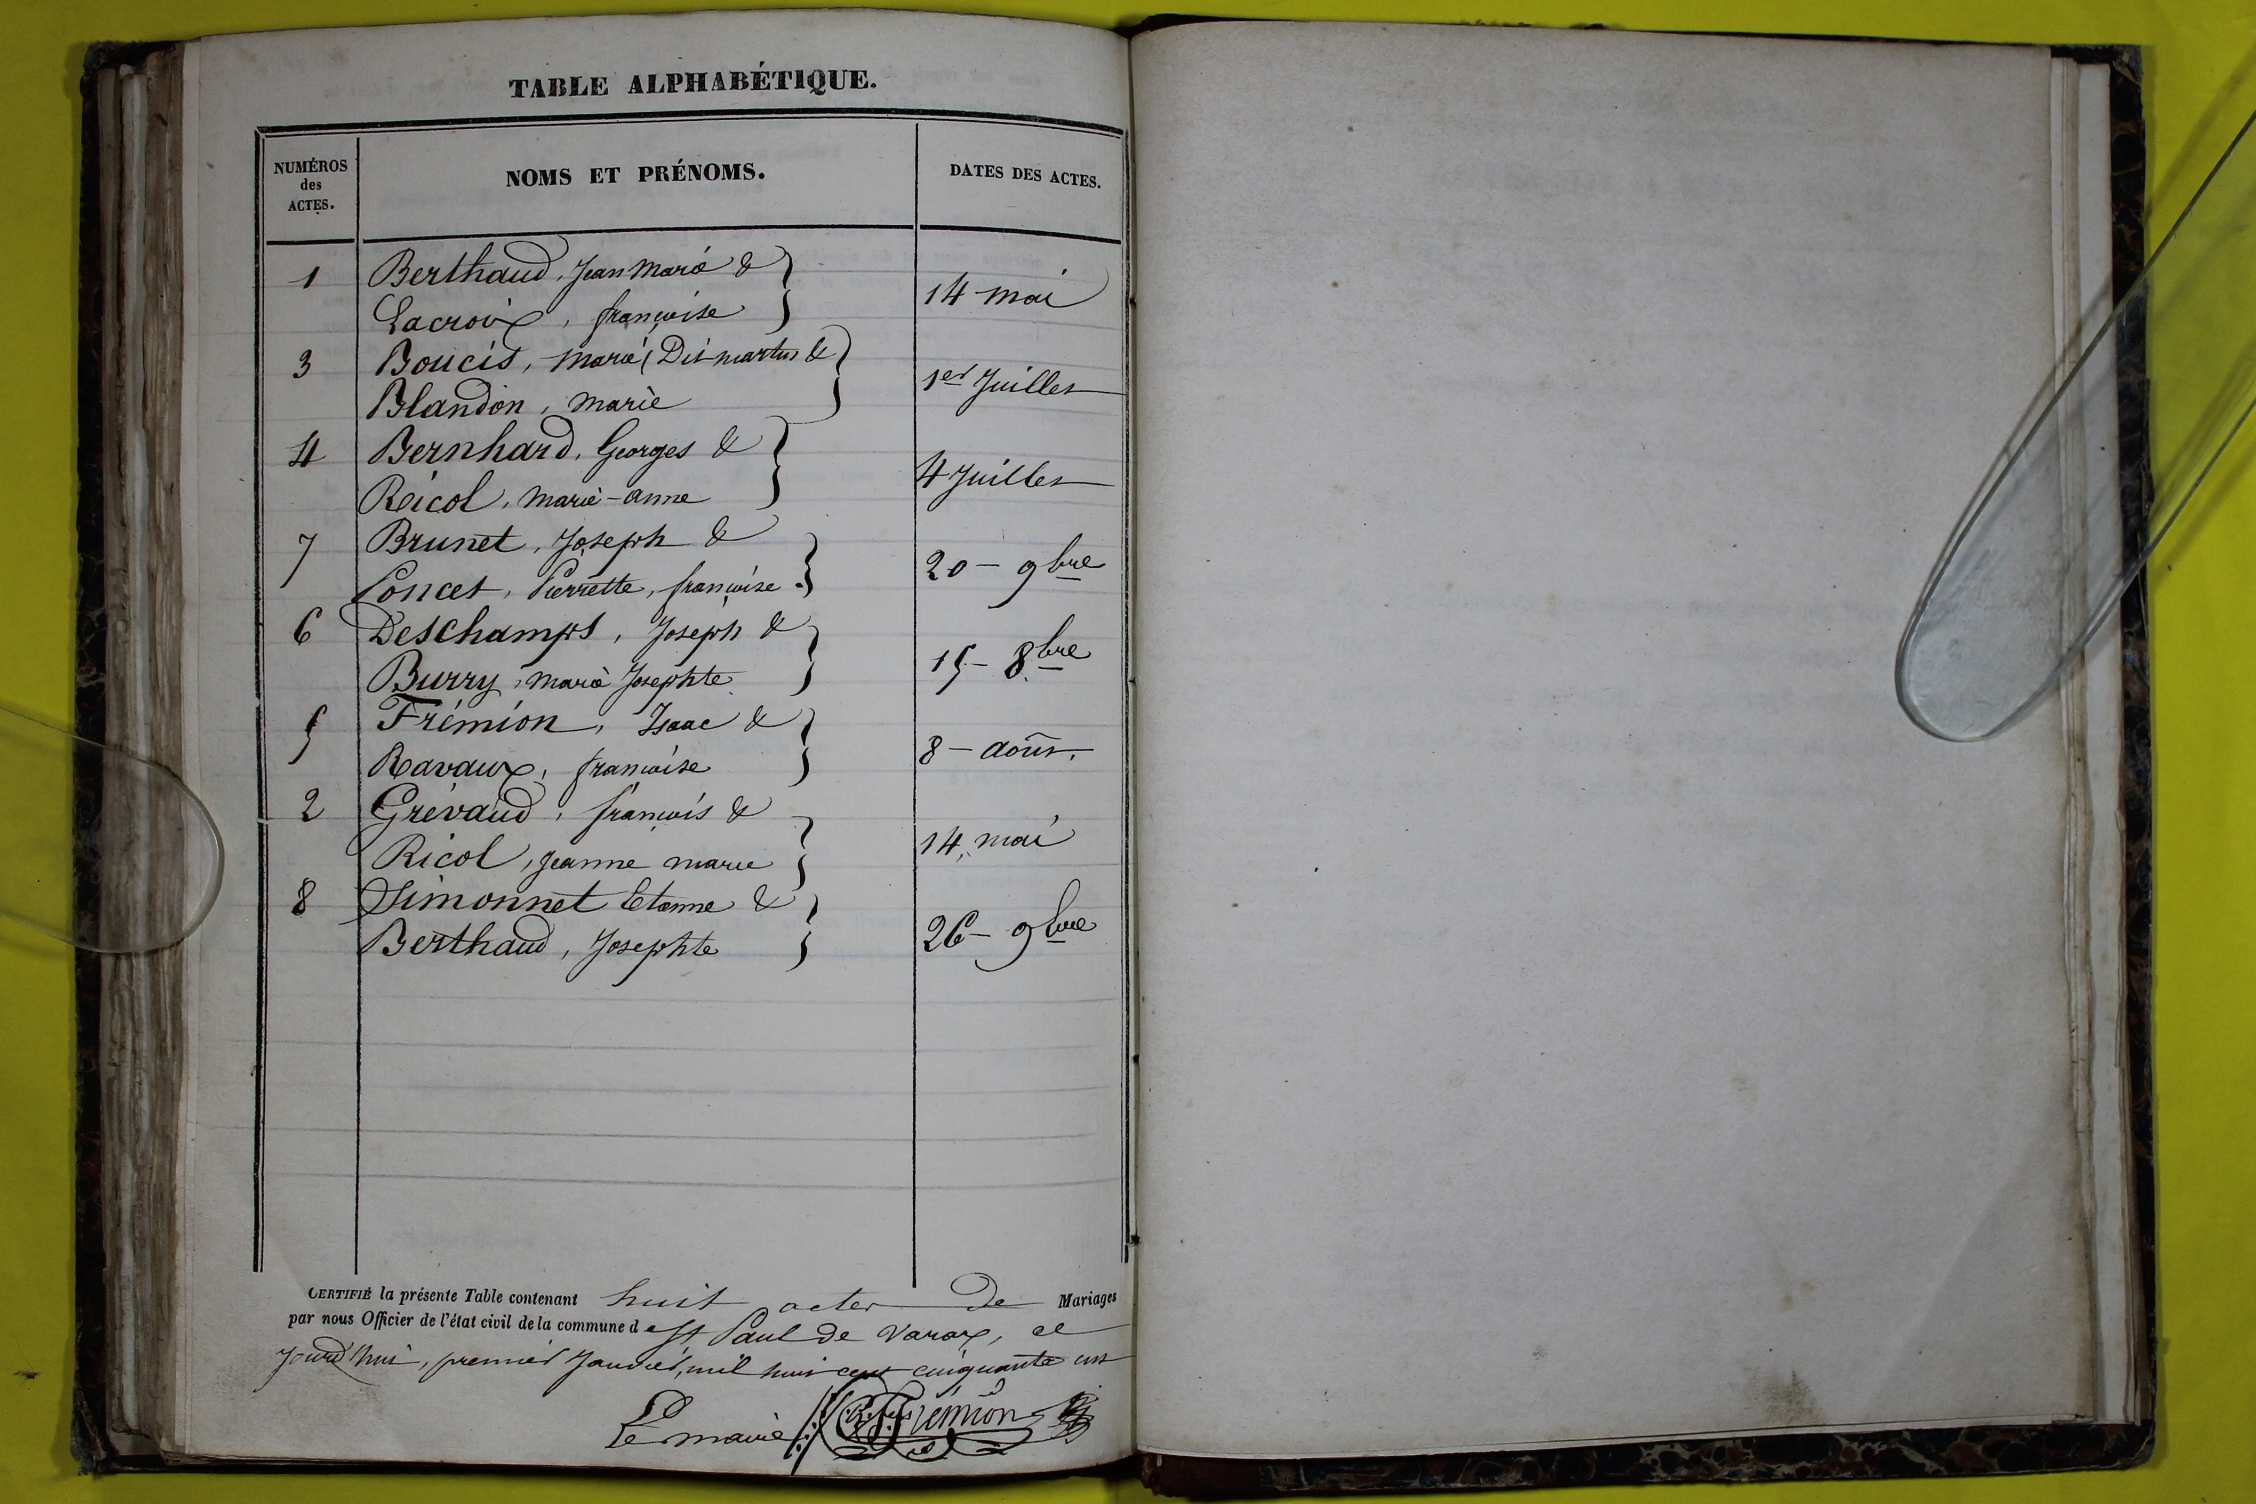 TABLE ALPHABÉTIQUE.
NUMÉROS des ACTES.
NOMS ET PRÉNOMS.
DATES DES ACTES.
1 Berthaud, Jean Marie &
Lacroix, françoise
14 mai
3 Boucis, Marie (Dit martin &
Blandon, Marie
1er Juillet
4 Bernhard, Georges &
Ricol, Marie-anne
4 Juillet
7 Brunet, Joseph &
Poncet, Pierrette, françoise
20 - 9bre
6 Deschamps, Joseph &
Burry, Marie Josephte
15 - 8bre
5 Frémion, Isaac &
Ravaux, françoise
8 - août.
2 Grévaud, françois &
Ricol, Jeanne marie
14, mai
8 Simonnet Etienne &
Berthaud, Josephte
26 - 9bre
CERTIFIÉ la présente Table contenant huit actes de Mariages
par nous Officier de l'état civil de la commune de St Paul de Varax, ce
Jourd'hui, premier Janvier, mil huit cent cinquante un
Le maire Frémion